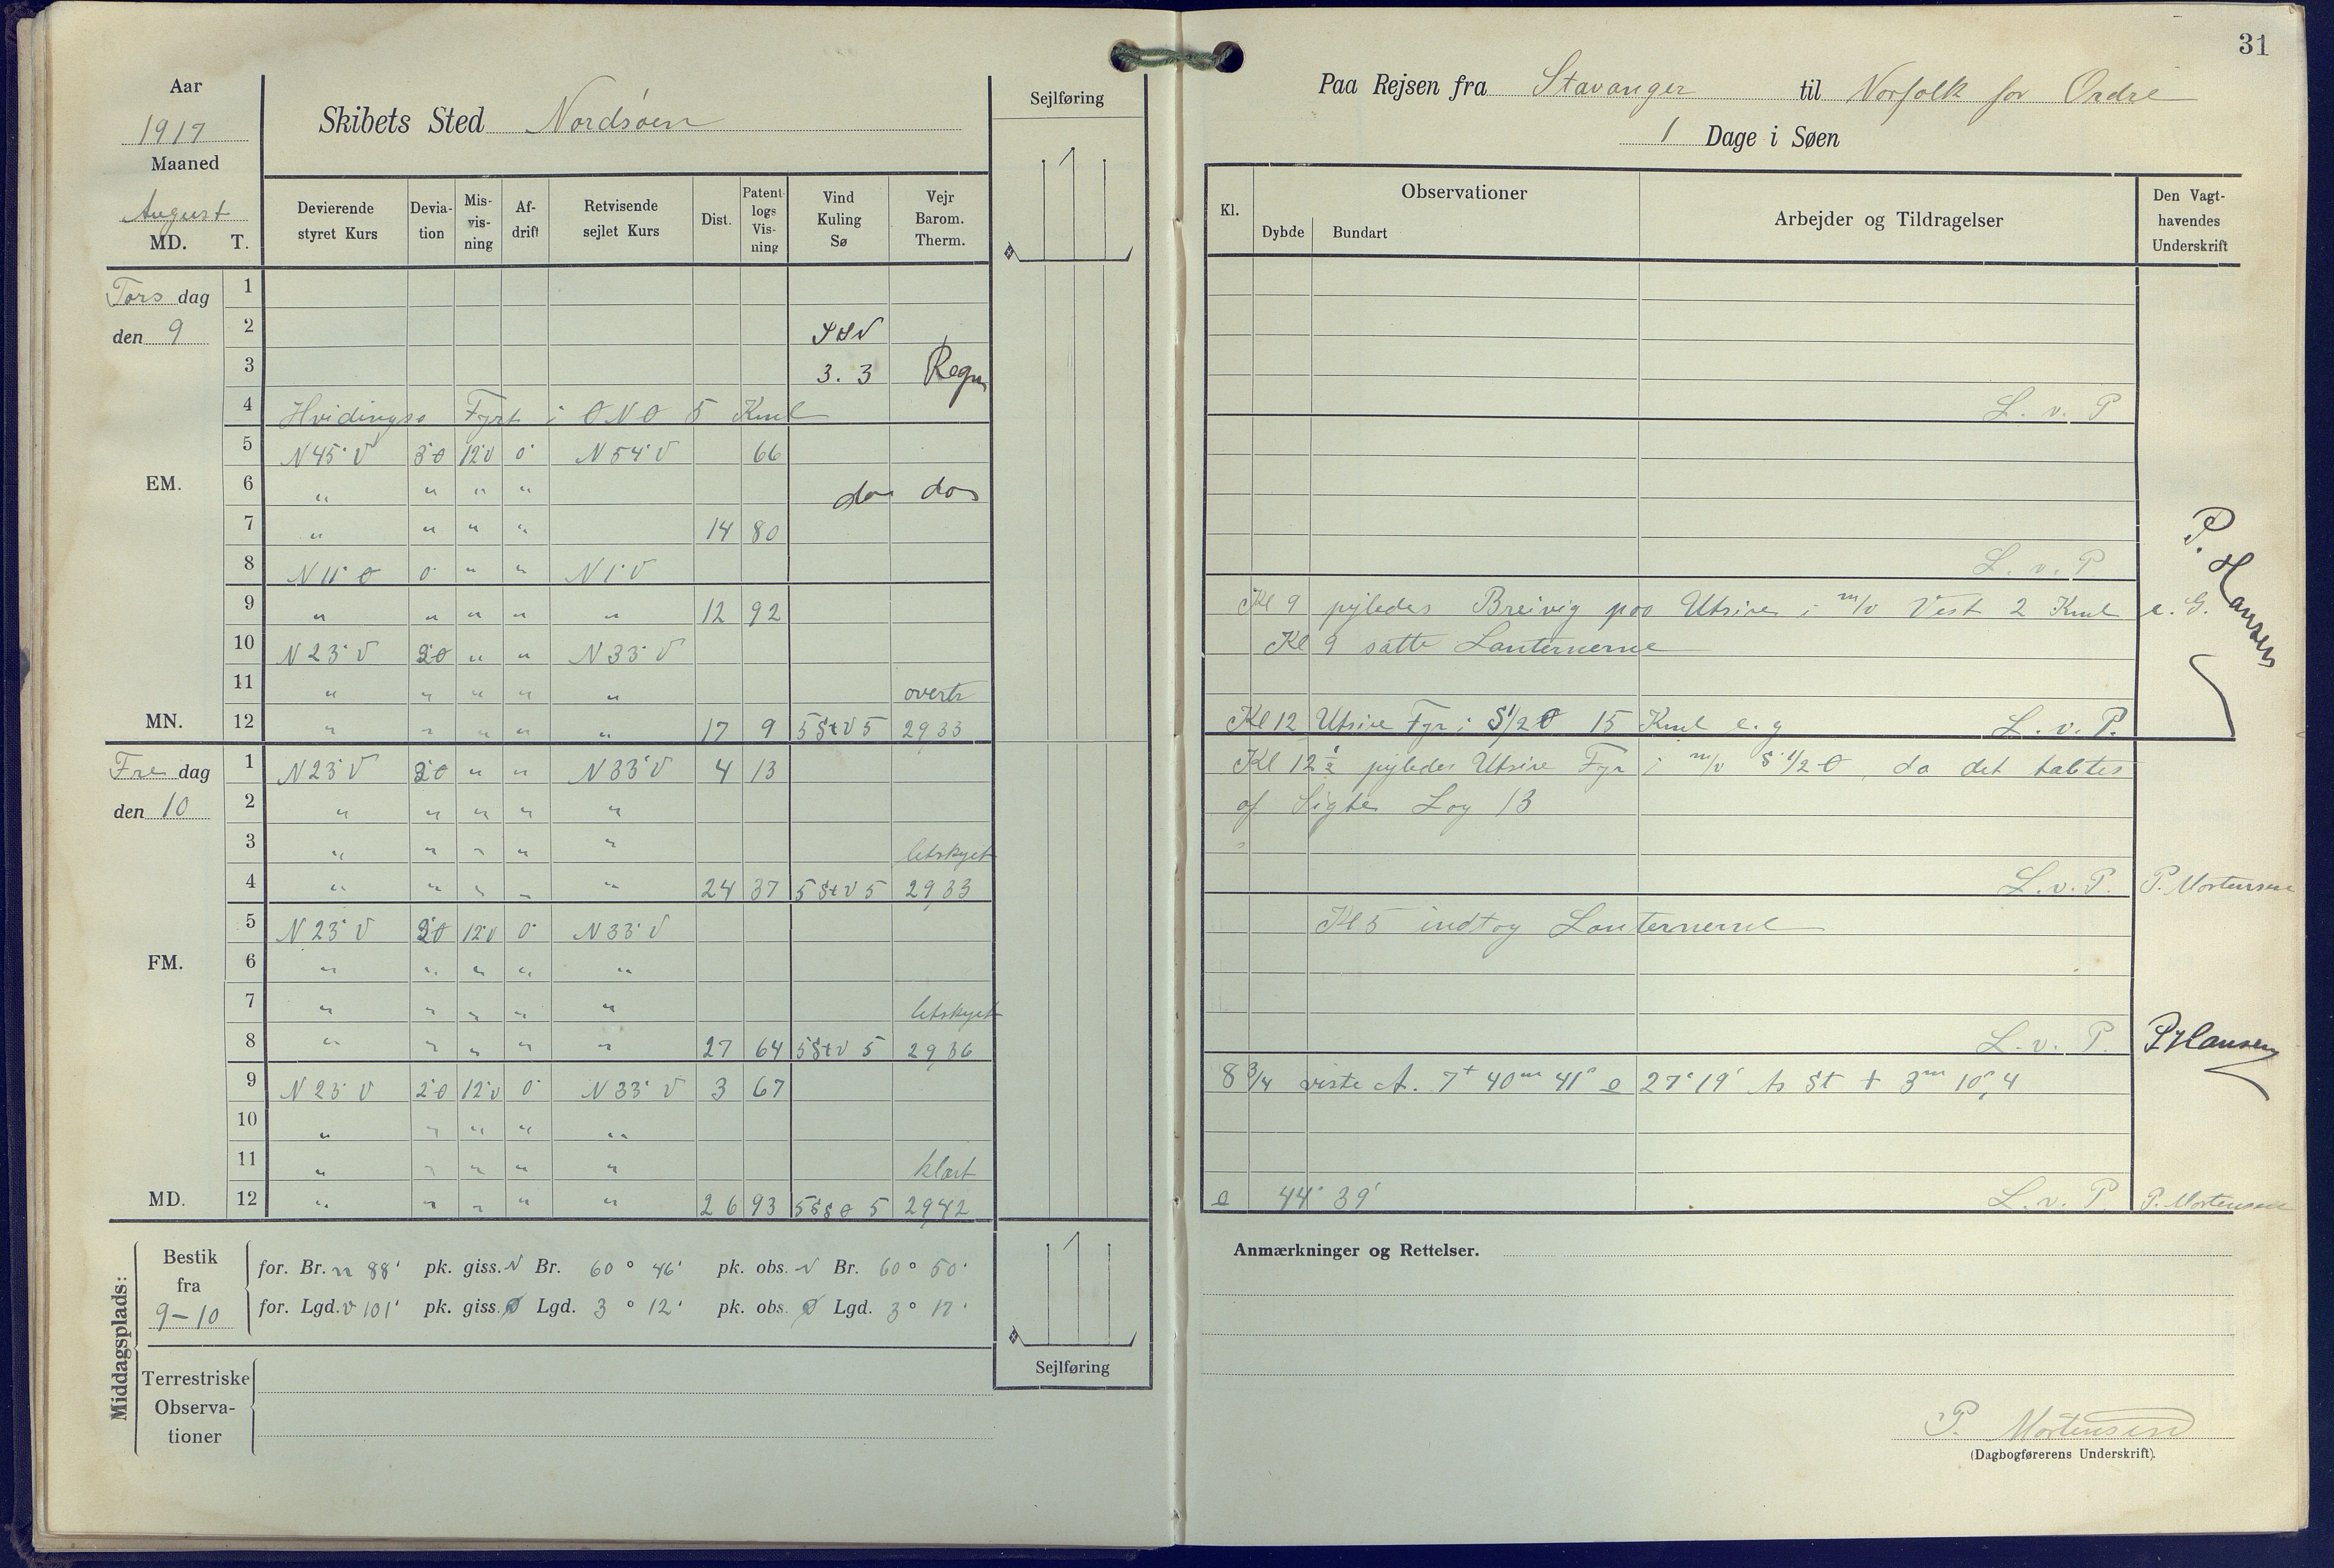 31
Aar
1917
Maaned
August
MD. T.
Skibets Sted Nordsøen
Sejlføring
Devierende styret Kurs
Devia-tion
Mis-vis-ning
Af-drift
Retvisende sejlet Kurs
Dist.
Patent-logs Vis-ning
Vind Kuling Sø
Vejr Barom. Therm.
Tors dag 1
den 9 2 SSV
3 3. 3 Regn
4 Hvidingsø Fyrt i ONO 5 Kml
5 N45°V 3°O 12°V 0° N54°V 66
EM. 6 " " " " do do
7 " " " " 14 80
8 N11°O 0° " " N1°V
9 " " " " " 12 92
10 N23°V 2°O " " N33°V
11 " " " " " overtr
MN. 12 " " " " " 17 9 5 StV 5 29,33
Fre dag 1 N23°V 2°O " " N33°V 4 13
den 10 2 " " " " "
3 " " " " " letskyet
4 " " " " " 24 37 5 StV 5 29,33
5 N23°V 2°O 12°V 0° N33°V
FM. 6 " " " " "
7 " " " " " letskyet
8 " " " " " 27 64 5 StV 5 29,36
9 N23°V 2°O 12°V 0° N33°V 3 67
10 " " " " "
11 " " " " " klart
MD. 12 " " " " " 26 93 5 SSO 5 29,42
Middagsplads:
Bestik fra 9-10
for. Br. N 88' pk. giss. N Br. 60° 46' pk. obs. N Br. 60° 50'
for. Lgd. V 101' pk. giss. Ø Lgd. 3° 12' pk. obs. Ø Lgd. 3° 17'
Terrestriske Observa-tioner
Sejlføring
Paa Rejsen fra Stavanger til Norfolk for Ordre
1 Dage i Søen
Kl.
Observationer
Dybde Bundart
Arbejder og Tildragelser
Den Vagt-havendes Underskrift
L. v. P
L. v. P.
P. Hansen
Kl 9 pejledes Breivig paa Utsire i m/v Vest 2 Kml e. G.
Kl 9 satte Lanternerne
Kl 12 Utsire Fyr i S 1/2 O 15 Kml e. g L. v. P.
Kl 12 1/2 pejledes Utsire Fyr i m/v S 1/2 O, da det tabtes
af Sigte Log 13
L. v. P. P. Mortensen
Kl 5 indtog Lanternerne
L. v. P. P Hansen
8 3/4 viste A. 7t 40m 41s 27° 19' St + 3m 10s,4
44° 39' L. v. P P. Mortensen
Anmærkninger og Rettelser.
P. Mortensen
(Dagbogførerens Underskrift).